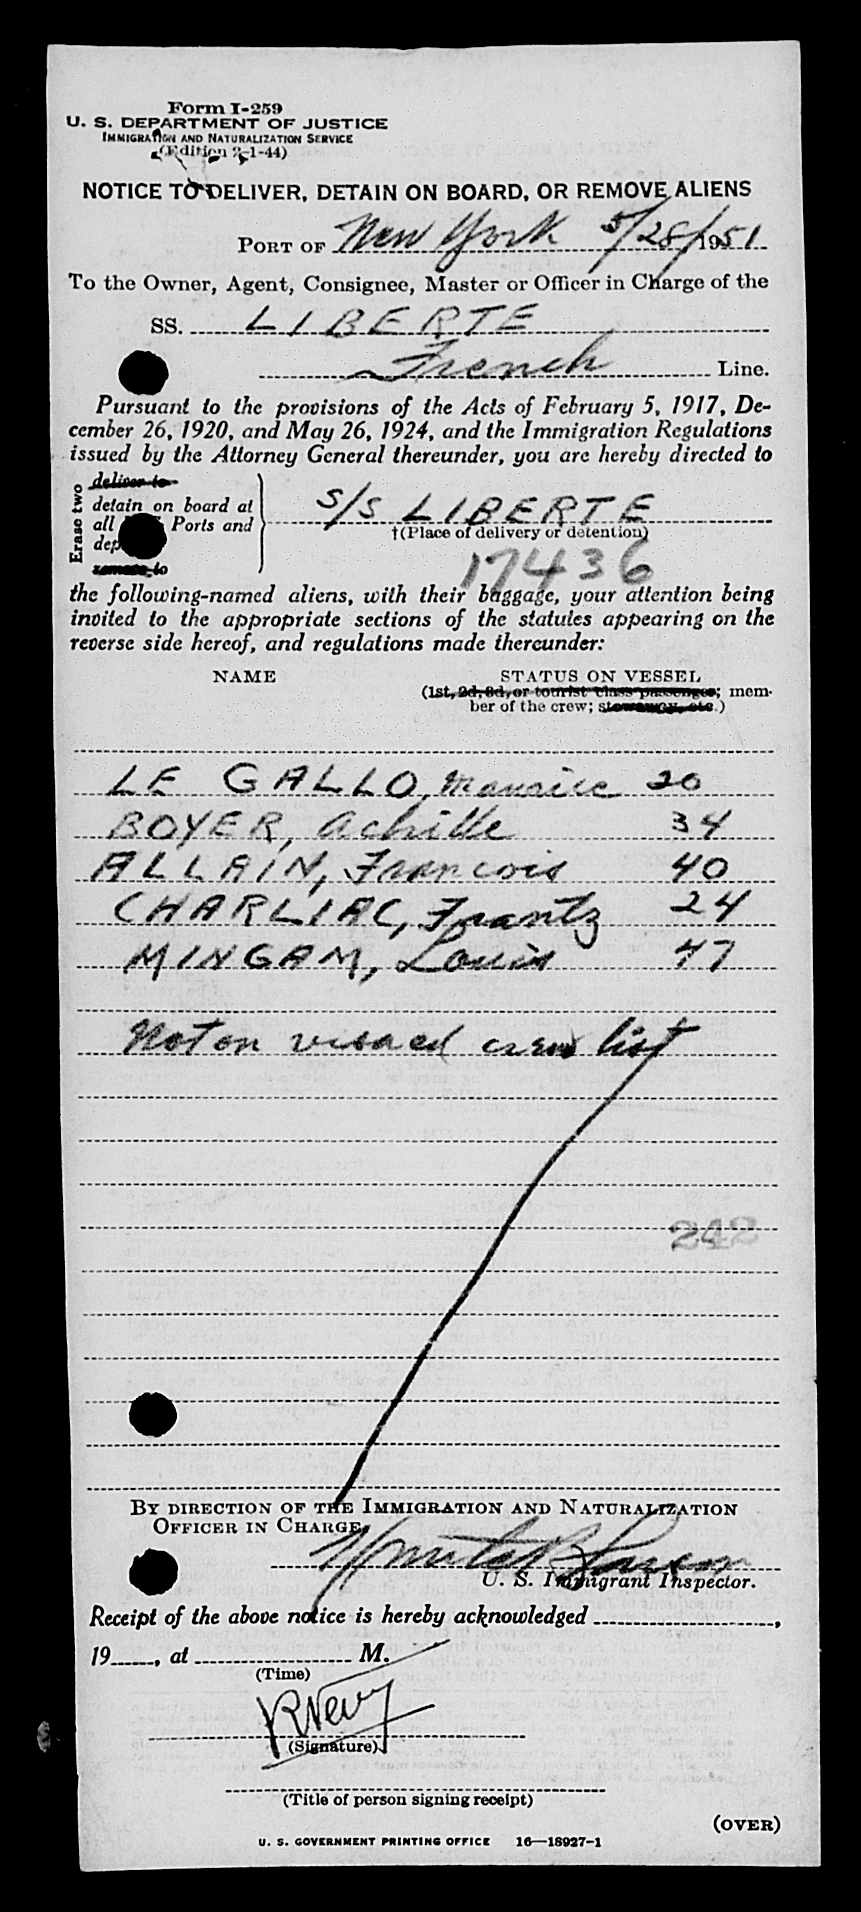 Form I-259
U. S. DEPARTMENT OF JUSTICE
IMMIGRATION AND NATURALIZATION SERVICE
(Edition 2-1-44)
NOTICE TO DELIVER, DETAIN ON BOARD, OR REMOVE ALIENS
PORT OF New York 5/28/1951
To the Owner, Agent, Consignee, Master or Officer in Charge of the
SS. LIBERTE
French Line.
Pursuant to the provisions of the Acts of February 5, 1917, De-
cember 26, 1920, and May 26, 1924, and the Immigration Regulations
issued by the Attorney General thereunder, you are hereby directed to
Erase two
deliver to
detain on board at
all Ports and
dep
remove to
S/S LIBERTE
†(Place of delivery or detention)
17436
the following-named aliens, with their baggage, your attention being
invited to the appropriate sections of the statutes appearing on the
reverse side hereof, and regulations made thereunder:
NAME STATUS ON VESSEL
(1st, 2d, 3d, or tourist class passenger; mem-
ber of the crew; stowaway, etc.)
LE GALLO, Maurice 20
BOYER, Achille 34
ALLAIN, Francois 40
CHARLIAC, Frantz 24
MINGAM, Louis 47
Not on visaed crew list
242
BY DIRECTION OF THE IMMIGRATION AND NATURALIZATION
OFFICER IN CHARGE,
U. S. Immigrant Inspector.
Receipt of the above notice is hereby acknowledged ,
19 , at M.
(Time)
(Signature)
(Title of person signing receipt)
(OVER)
U. S. GOVERNMENT PRINTING OFFICE 16—18927-1